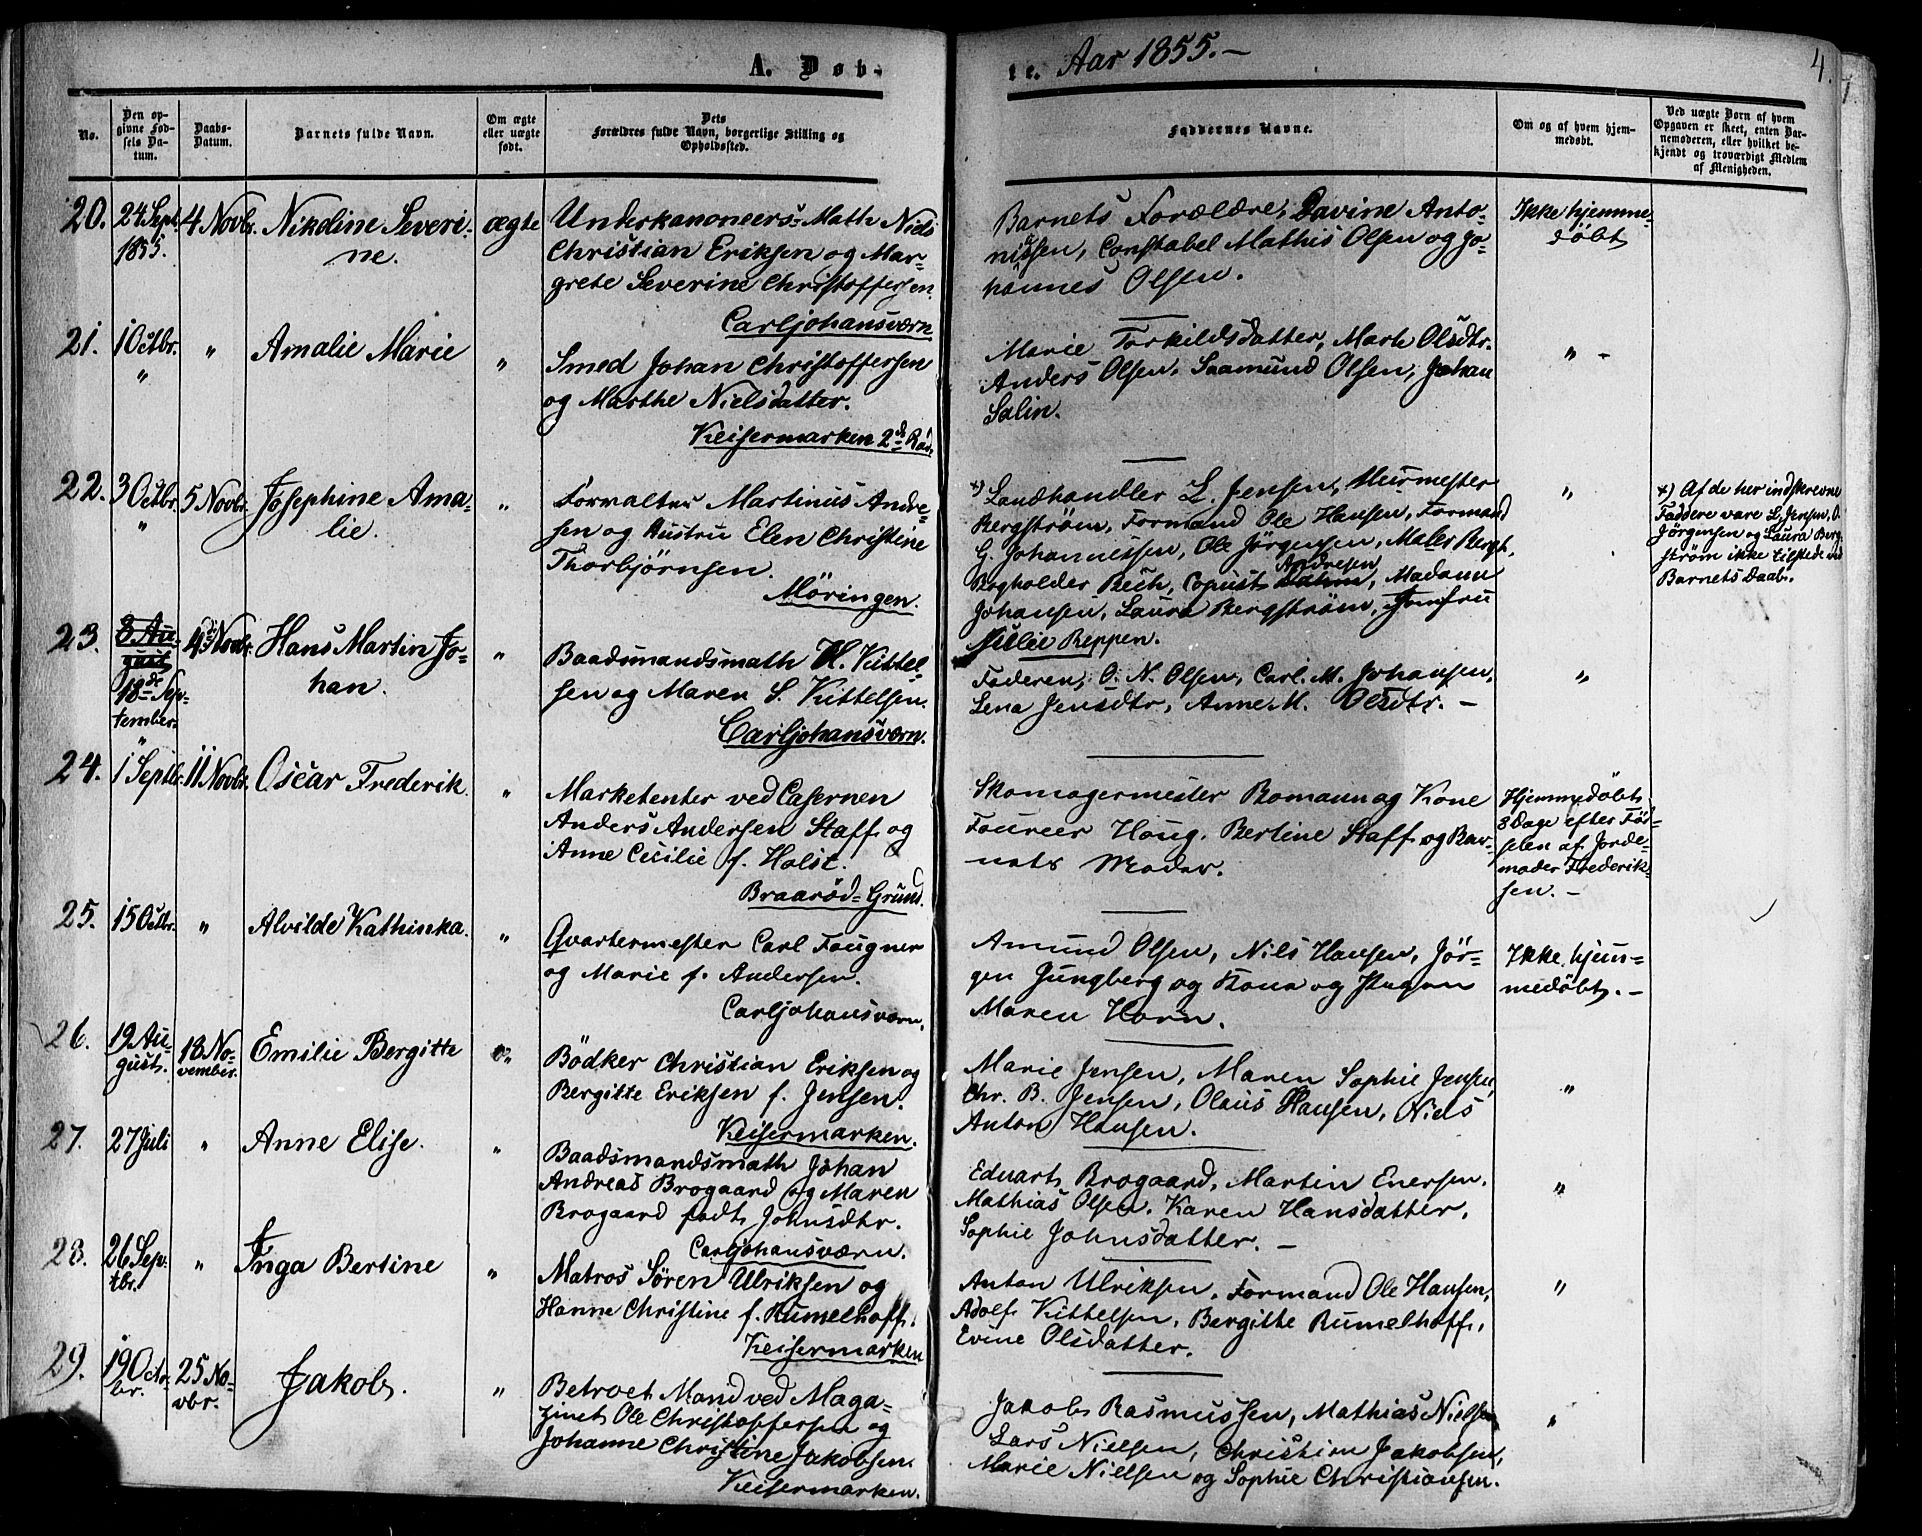 A. Døb-
te. Aar 1855.-
4.
No.
Den op-
givne Fød-
sels Da-
tum.
Daabs-
Datum.
Barnets fulde Navn.
Om ægte
eller uægte
født.
Dets
Forældres fulde Navn, borgerlige Stilling og
Opholdssted.
Faddernes Navne.
Om og af hvem hjem-
medøbt.
Ved uægte Børn af hvem
Opgaven er skeet, enten Bar-
nemoderen, eller hvilket be-
kjendt og troværdigt Medlem
af Menigheden.
20.
24 Sept.
1855.
4 Novbr.
Nikoline Severi-
ne.
ægte
Underkanoneers-Math Niels
Christian Eriksen og Mar-
grete Severine Christoffersen.
Carljohansværn
Barnets Forældre, Davine Anto-
nissen, Constabel Mathis Olsen og Jo-
hannes Olsen.
Ikke hjemme-
døbt
21.
1 Octbr.
"
"
Amalie Marie
"
Smed Johan Christoffersen
og Marthe Nielsdatter.
Keisermarken 2d Rode
Marie Torkildsdatter, Marte Olsdtr.
Anders Olsen, Saamund Olsen, Johan
Salin.
" -
22.
3 Octbr.
"
5 Novbr.
Josephine Ama-
lie.
"
Forvalter Martinus Andre-
sen og Hustru Elen Christine
Thorbjørnsen.
Møringen.
x) Landhandler L. Jensen, Murmester
Bergstrøm, Formand Ole Hansen, Formand
G. Johannessen, Ole Jørgensen, Maler Bergh,
Bogholder Bech, Copiist Andresen, Madam
Johansen, Laura Bergstrøm, Jomfru
Reppen.
"
x) Af de her indskrevne
Faddere vare L. Jensen, O.
Jørgensen og Laura Berg-
strøm ikke tilstede ved
Barnets Daab.
23.
8 Au-
gust
18de Sep-
tember.
4 Novbr.
Hans Martin Jo-
han.
"
Baadsmandsmath H. Kittel-
sen og Maren S. Kittelsen.
Carljohansværn.
Faderen, O. N. Olsen, Carl. M. Johansen,
Lena Jensdtr, Anne M. Olsdtr. -
"
24.
"
1 Septbr.
11 Novbr.
Oscar Frederik.
"
Marketenter ved Casernen
Anders Andersen Staff og
Anne Cecilie f. Holst.
Braarød-Grund.
Skomagermester Bomann og Kone
Foureer Houg, Bertine Staff og Bar-
nets Moder.
Hjemmedøbt
8 Dage efter Fød-
selen af Jorde-
moder Frederik-
sen. -
25.
15 Octbr.
"
Alvilde Kathinka.
"
Qvartermester Carl Fougner
og Marie f. Andersen.
Carljohansværn.
Amund Olsen, Nils Hansen, Jør-
gen Jungberg og Kone og
Maren Horn.
Ikke hjem-
medøbt. -
26.
19 Au-
gust.
18 No-
vember.
Emilie Bergitte
"
Bødker Christian Eriksen og
Bergitte Eriksen f. Jensen.
Keisermarken.
Marie Jensen, Maren Sophie Jensen,
Chr. B. Jensen, Olaus Hansen, Niels
Anton Hansen.
"
27.
27 Juli
"
Anne Elise.
"
Baadsmandsmath Johan
Andreas Brogaard og Maren
Brogaard født Johnsdtr.
Carljohansværn.
Eduart Brogaard, Martin Enersen,
Mathias Olsen, Karen Hansdatter,
Sophie Johnsdatter. -
"
28.
26 Sep-
tbr.
"
Inga Bertine
"
Matros Søren Ulriksen og
Hanne Christine f. Rumelhoff.
Keisermarken
Anton Ulriksen, Formand Ole Hansen,
Adolf Kittelsen, Bergitte Rumelhoff,
Evine Olsdatter.
"
29.
19 Octo-
br.
25 No-
vbr.
Jakob.
"
Betroet Mand ved Maga-
zinet Ole Christoffersen og
Johanne Christine Jakobsen.
Keisermarken.
Jakob Rasmussen, Mathias Nielsen
Lars Nielsen, Christian Jakobsen,
Marie Nielsen og Sophie Christiansen.
"